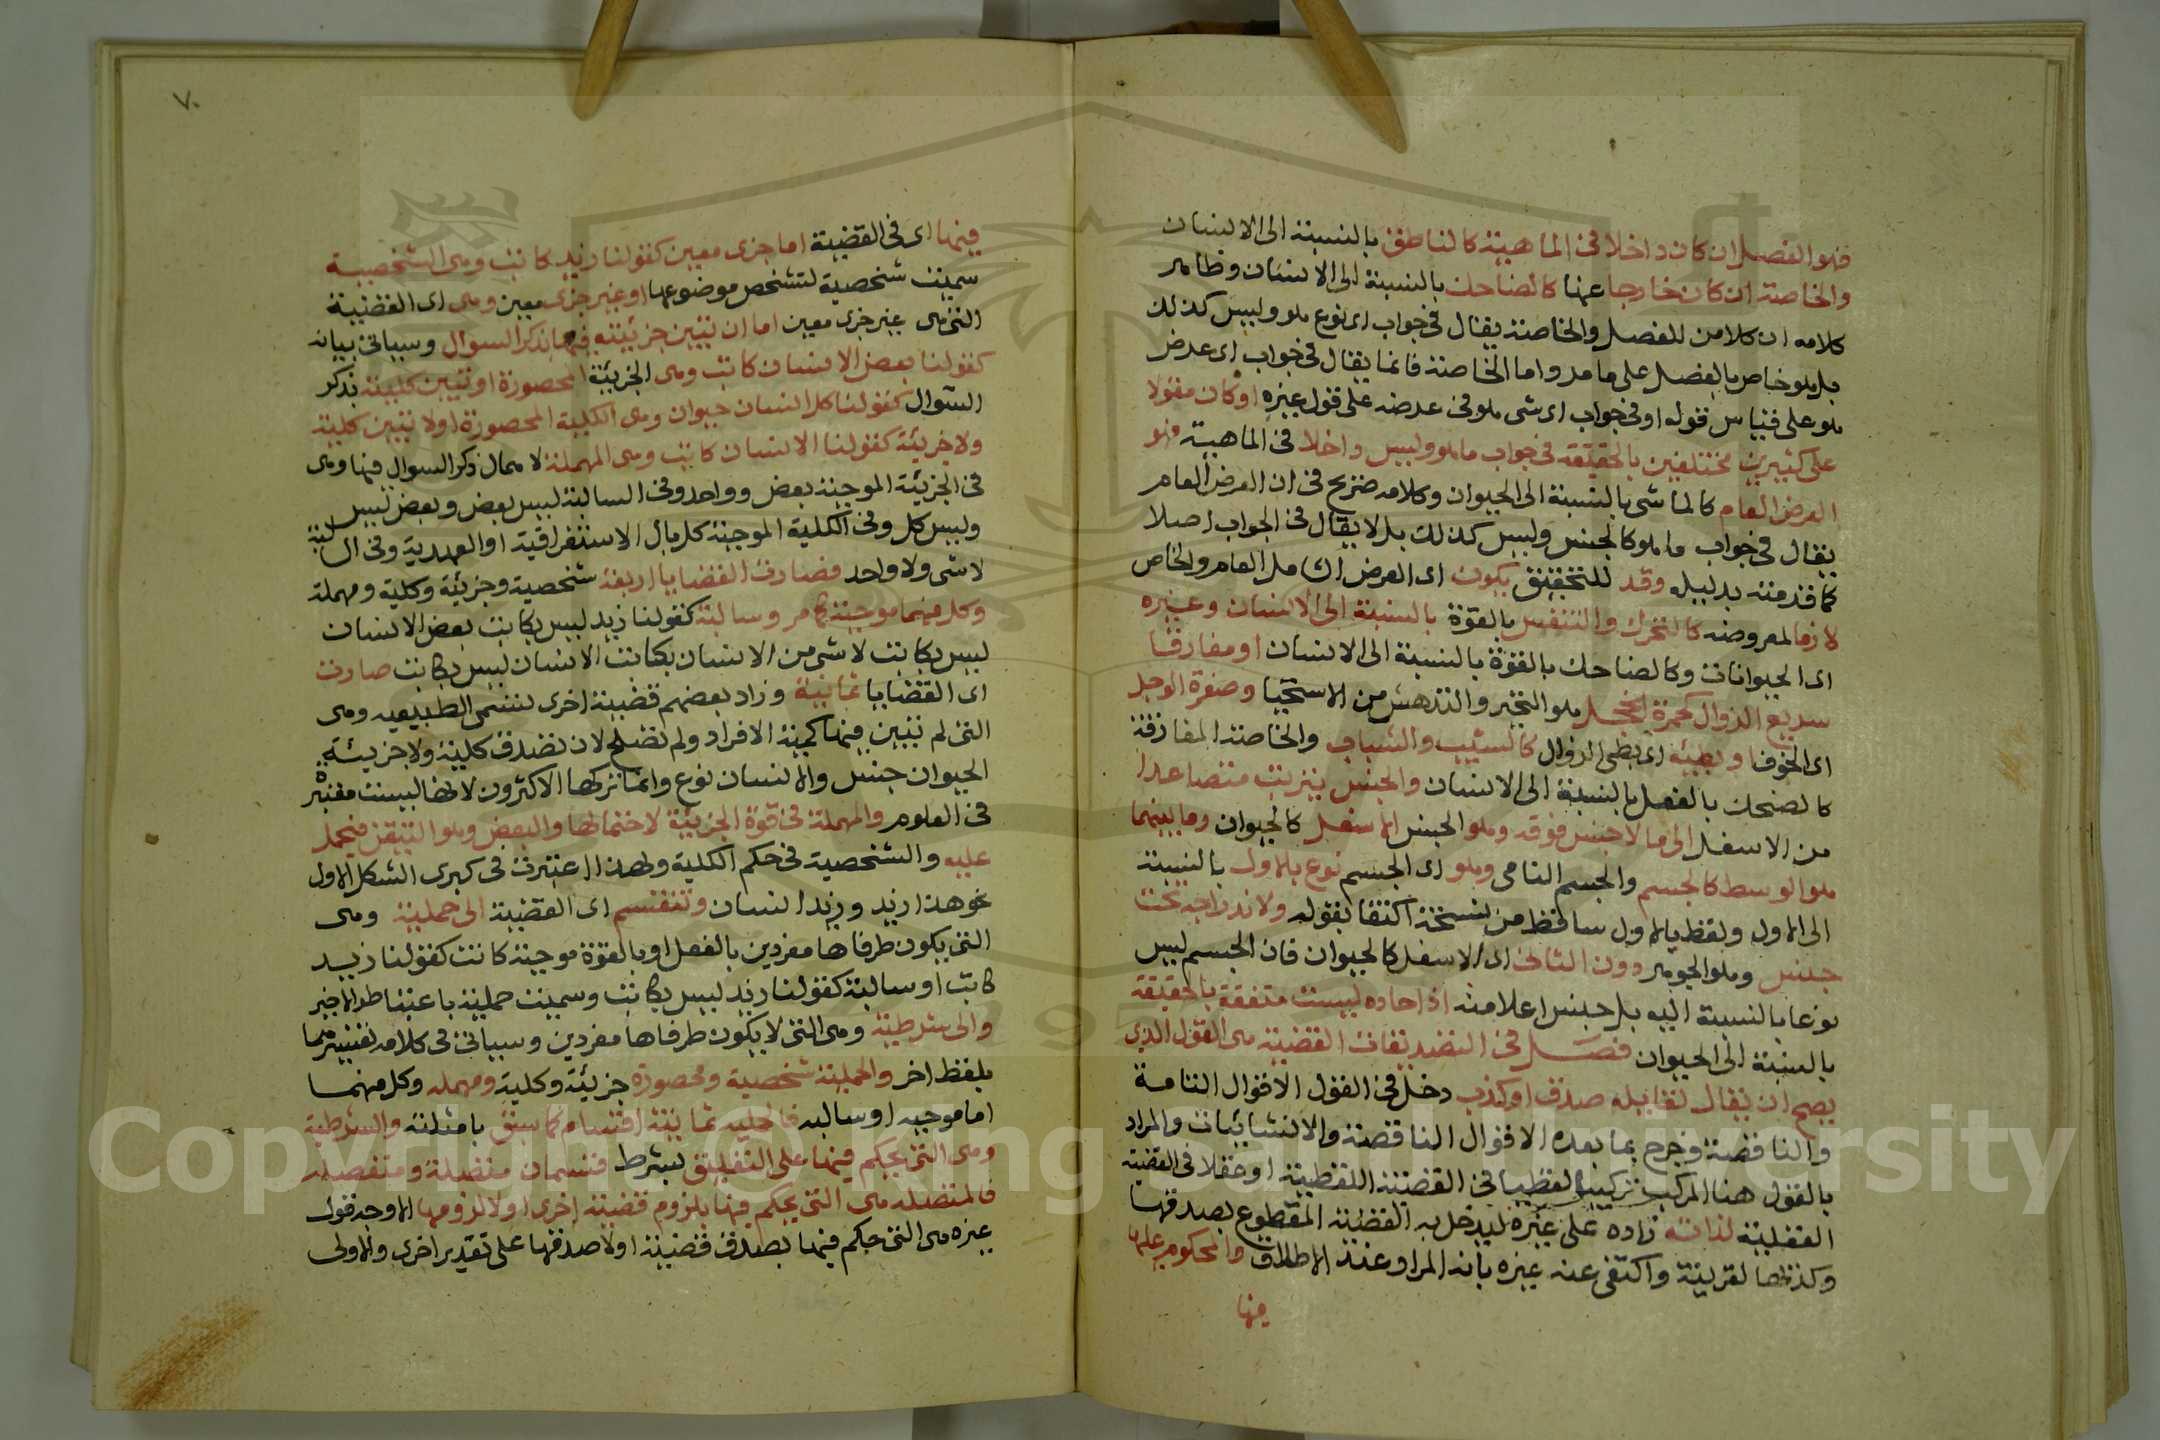 فهو الفصل ان كان داخلا في الماهية كالناطق بالنسبة الى الانسان
والخاصة ان كان خارجا عنها كالضاحك بالنسبة الى الانسان وظاهر
كلامه ان كلا من الفصل والخاصة يقال في جواب اى نوع هو وليس كذلك
بل هو خاص بالفصل على ما مر واما الخاصة فانما يقال في جواب اى عرض
هو على قياس قوله او في جواب اى شى هو في عرضه على قول غيره او كان مقولا
على كثيرين مختلفين بالحقيقة في جواب ما هو وليس داخلا في الماهية فهو
العرض العام كالماشى بالنسبة الى الحيوان وكلامه صريح في ان العرض العام
يقال في جواب ما هو كالجنس وليس كذلك بل لا يقال في الجواب اصلا
كما قدمته بدليله وقد للتحقيق يكون اى العرض الشامل العام والخاص
لازما لمعروضه كالتحرك والتنفس بالقوة بالنسبة الى الانسان وغيره
اى الحيوانات وكالضاحك بالقوة بالنسبة الى الانسان او مفارقا
سريع الزوال كحمرة الخجل هو التحير والتدهش من الاستحيا وصفرة الوجل
اى الخوف او بطيئه اى بطى الزوال كالشيب والشباب والخاصة المفارقة
كالضحك بالفعل بالنسبة الى الانسان والجنس يترتب متصاعدا
من الاسفل الى ما لا جنس فوقه وهو الجنس الاسفل كالحيوان وما بينهما
هو الوسط كالجسم والجسم النامي وهو اى الجسم نوع بالاول بالنسبة
الى الاول ولفظ بالاول ساقط من نسخة اكتفا بقوله ولاندراجه تحت
جنس وهو الجوهر دون الثاني اى الاسفل كالحيوان فان الجسم ليس
نوعا بالنسبة اليه بل جنس اعلا منه اذ احاده ليست متفقة بالحقيقة
بالنسبة الى الحيوان فصل في التصديقات القضية هى القول الذى
يصح ان يقال لقايله صدق او كذب دخل في القول الاقوال التامة
والناقصة وخرج بما بعده الاقوال الناقصة والانشائيات والمراد
بالقول هنا المركب تركيبا لفظيا في القضية اللفظية او عقلا في القضية
العقلية لذاته زاده على غيره ليدخل به القضية المقطوع بصدقها
وكذبها لقرينة واكتفى عنه غيره بانه المراد عند الاطلاق والمحكوم عليه
فيها
٧٠
فيها اى في القضية اما جزى معين كقولنا زيد كاتب وهى الشخصية
سميت شخصية لتشخص موضوعها او غير جزى معين وهى اى القضية
التى هى غير جزى معين اما ان تبين جزئيته فيها بذكر السوال وسياتى بيانه
كقولنا بعض الانسان كاتب وهى الجزئية المحصورة او تبين كلية بذكر
السوال كقولنا كل انسان حيوان وهى الكلية المحصورة او لا تبين كلية
ولا جزئية كقولنا الانسان كاتب وهى المهملة لاهمال ذكر السوال فيها وهى
في الجزئية الموجبة بعض وواحد وفي السالبة ليس بعض وبعض ليس
وليس كل وفي الكلية الموجبة كل وال الاستغراقية او العهدية وفي السالبة
لا شى ولا واحد فصارت القضايا اربعة شخصية وجزئية وكلية ومهملة
وكل منهما موجبة كما مر وسالبة كقولنا زيد ليس بكاتب بعض الانسان
ليس بكاتب لا شى من الانسان بكاتب الانسان ليس بكاتب صارت
اى القضايا ثمانية وزاد بعضهم قضية اخرى تسمى الطبيعيه وهى
التى لم تبين فيها كمية الافراد ولم تصلح لان تصدق كلية ولا جزيئة
الحيوان جنس والانسان نوع وانما تركها الاكثرون لانها ليست معتبرة
في العلوم والمهملة في قوة الجزيئة لاحتمالها والبعض وهو المتيقن فيحمل
عليه والشخصية في حكم الكلية ولهذا اعتبرت في كبرى الشكل الاول
نحو هذا زيد وزيد انسان وتنقسم اى القضية الى حملية وهى
التى يكون طرفاها مفردين بالفعل او بالقوة موجبة كانت كقولنا زيد
كاتب او سالبة كقولنا زيد ليس بكاتب وسميت حملية باعتبار طرفها الاخير
والى شرطية وهى التى لا يكون طرفاها مفردين وسياتى في كلامه تفسيرهما
بلفظ اخر والحملية شخصية ومحصورة جزيئة وكلية ومهمله وكل منهما
اما موجبه او سالبه فالحليه ثمانية اقسام كما سبق بامثلته والشرطية
وهى التى يحكم فيها على التعليق بشرط قسمان متصلة ومنفصله
فالمتصله هى التى يحكم فيها بلزوم قضية اخرى او لا لزومها الاوجه قول
غيره هى التى حكم فيها بصدق قضية او لا صدقها على تقدير اخرى والاولى
Copyright © King Saud University